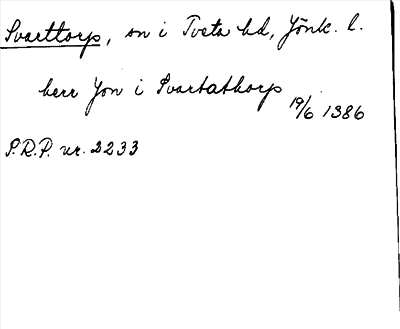 Svarttorp, sn i Tveta hd, Jönk. l.
herr Jon i Svartathorp 19/6 1386
S.R.P. nr. 2233